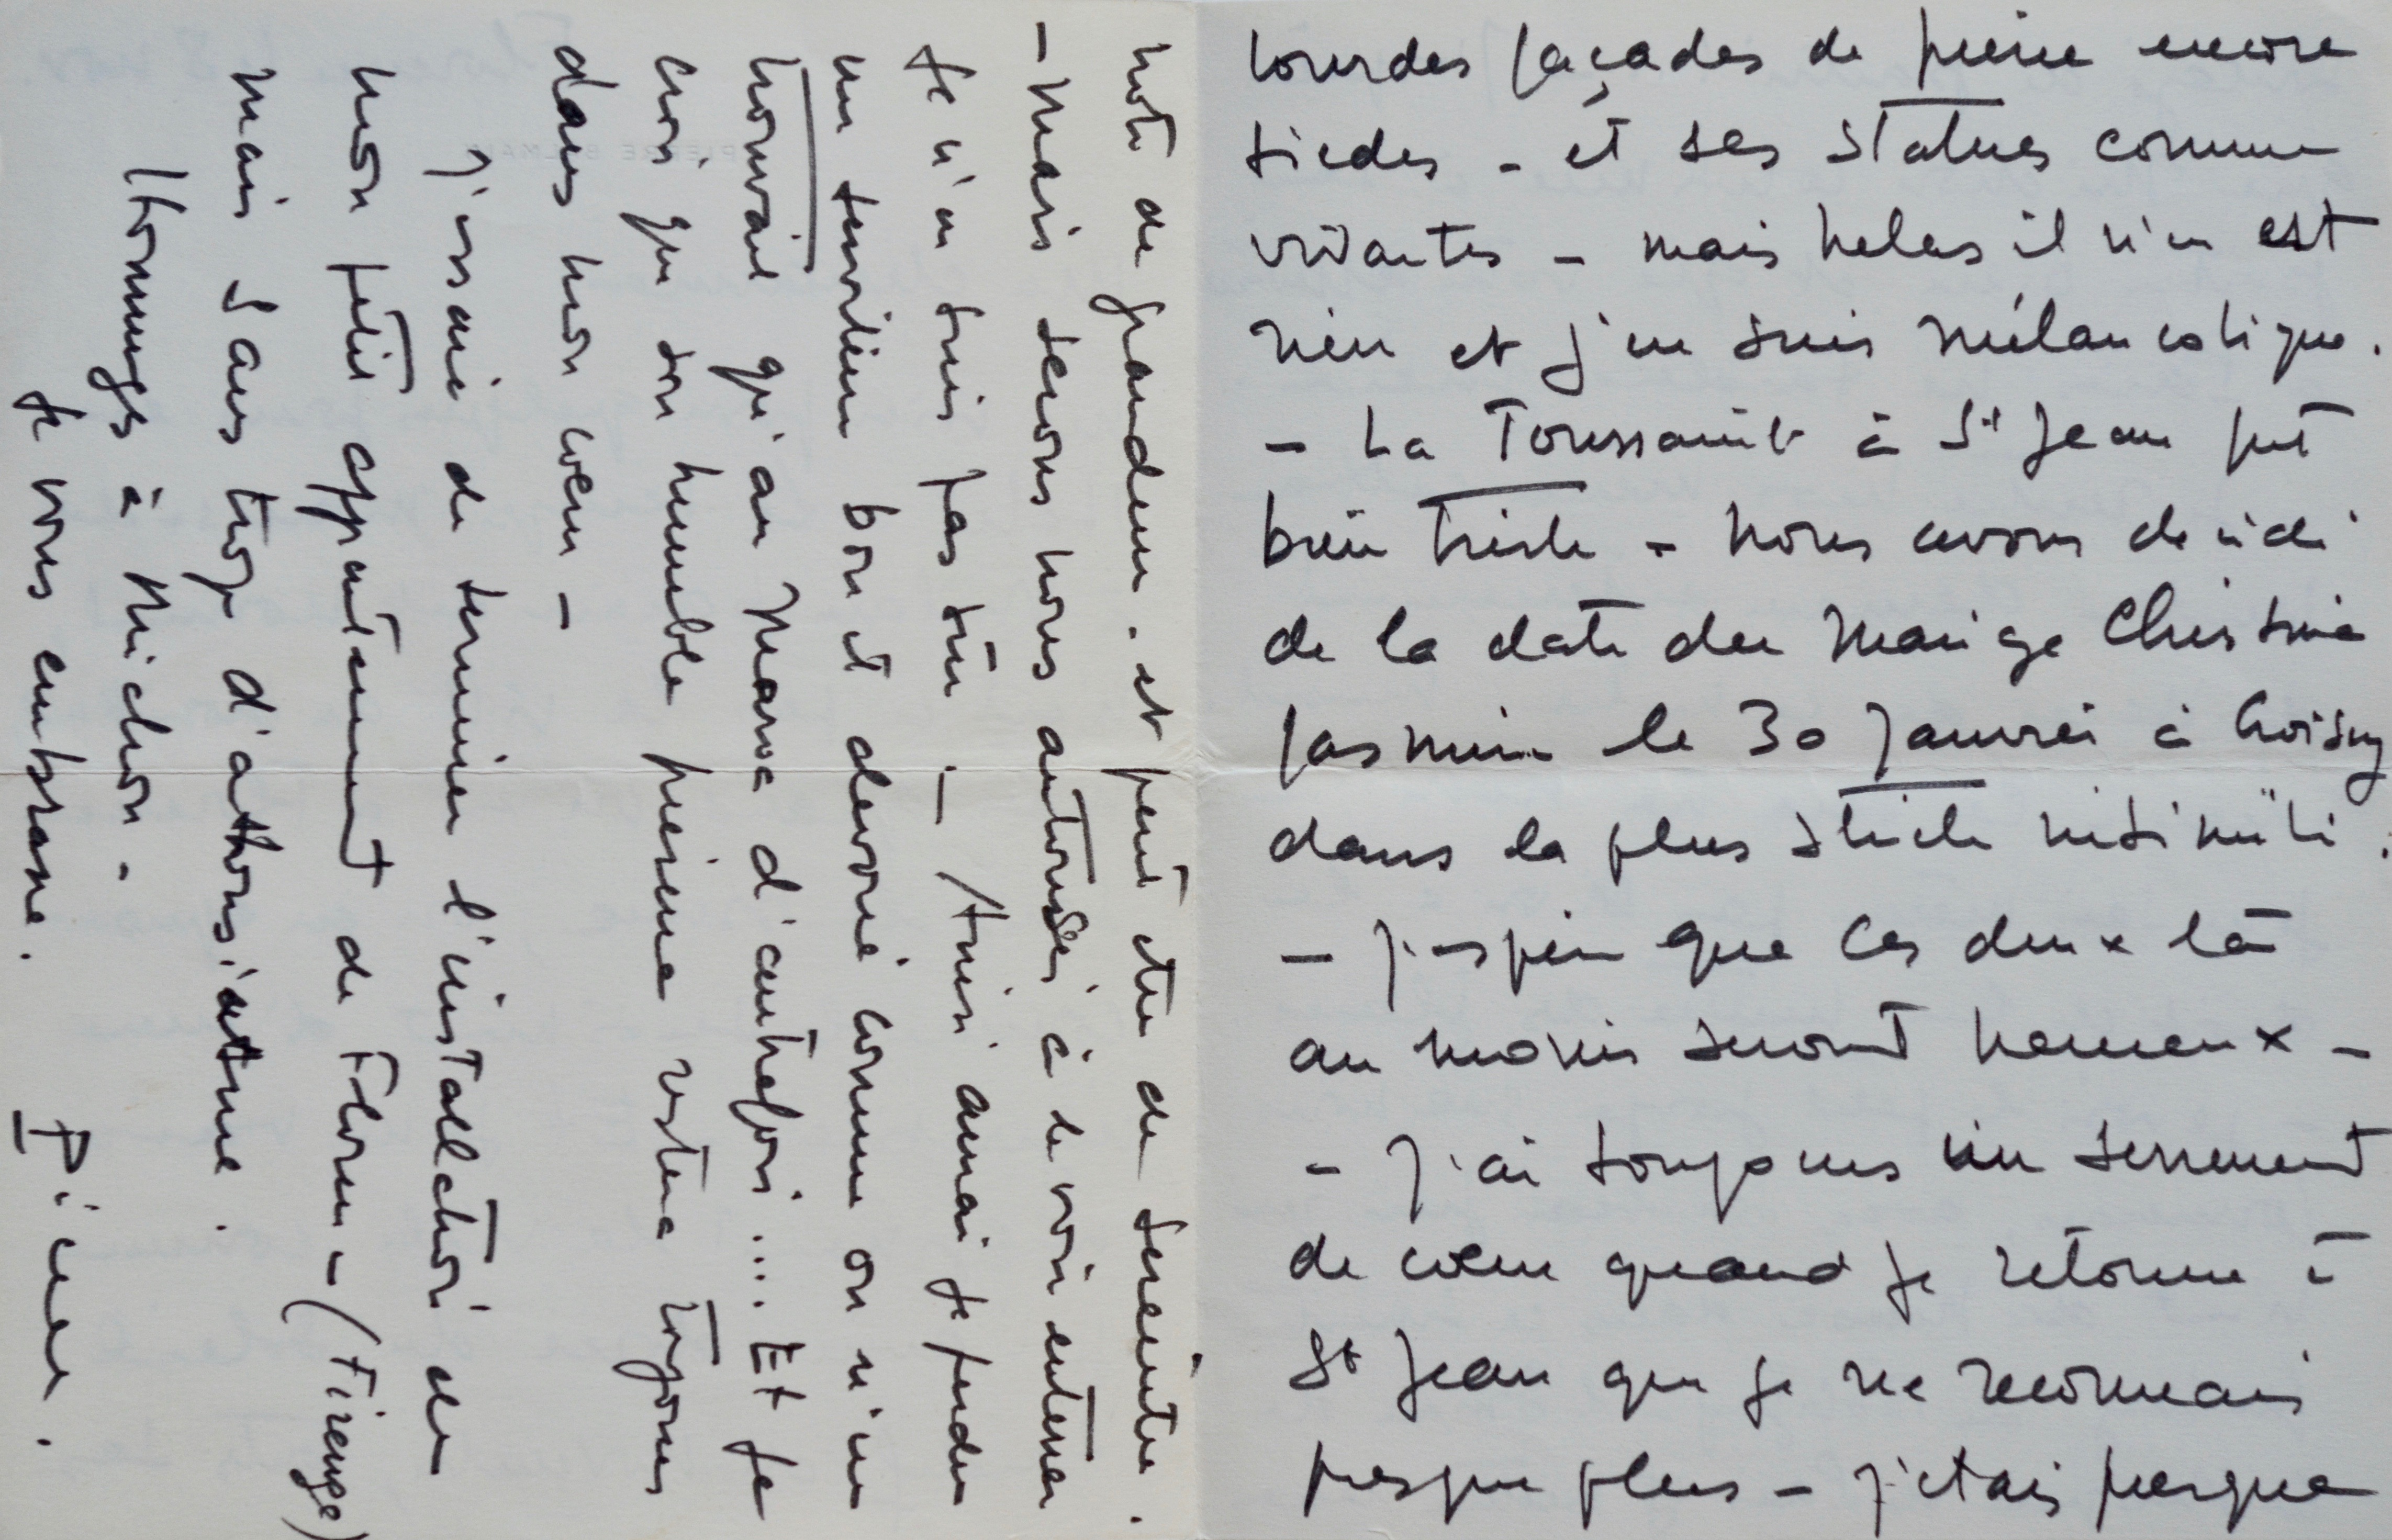 lourdes façades de pierre encore
tiedes - et ses statues comme
vivantes - mais helas il n'en est
rien et j'en suis mélancolique.
- La Toussaint à St Jean fut
bien triste - nous avons decidé
de la date du mariage Christine
Jasmin le 30 Janvier à Croissy
dans la plus stricte intimité.
- J'espère que ces deux là
au moins seront heureux -
- J'ai toujours un serrement
de coeur quand je retourne à
St Jean que je ne reconnais
presque plus - j'etais presque
note de grandeur. et peut etre de serenité.
- Mais serons nous autorisés à le voir enterrer
Je n'en suis pas sûr. - Ainsi aurai je perdu
un serviteur bon et devoué comme on n'en
trouvait qu'au Maroc d'autrefois... Et je
crois que son humble presence restera toujours
dans mon coeur -
J'essaie de terminer l'installation de
mon petit appartement de Florence (Firenze)
mais sans trop d'athousiasme.
Hommages à Michon -
Je vous embrasse.
Pierre.
PIERRE BALMAIN